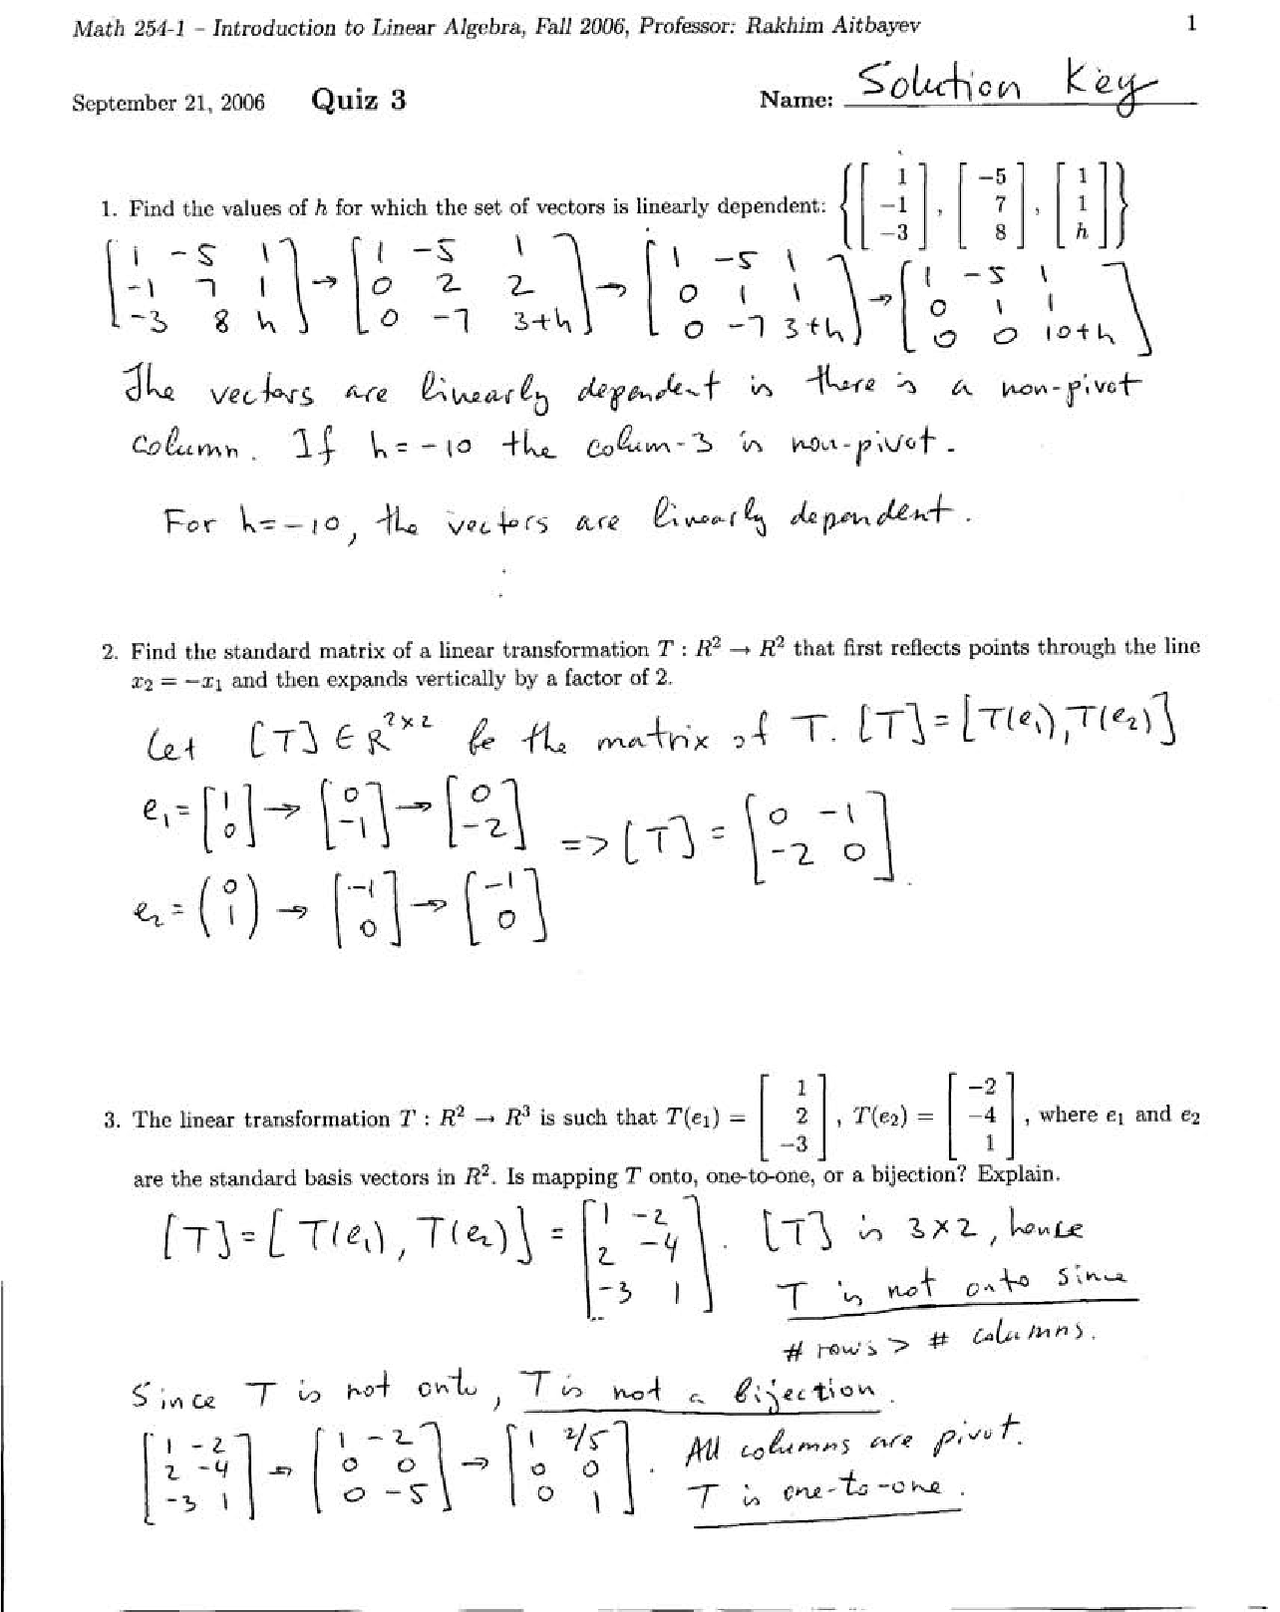 Math 254-1 – Introduction to Linear Algebra, Fall 2006, Professor: Rakhim Aitbayev 1
September 21, 2006 Quiz 3 Name: Solution Key
1. Find the values of h for which the set of vectors is linearly dependent: {[1; -1; -3], [-5; 7; 8], [1; 1; h]}
[1 -5 1; -1 7 1; -3 8 h] → [1 -5 1; 0 2 2; 0 -7 3+h] → [1 -5 1; 0 1 1; 0 -7 3+h] → [1 -5 1; 0 1 1; 0 0 10+h]
The vectors are linearly dependent is there is a non-pivot
column. If h=-10 the colum-3 is non-pivot.
For h=-10, the vectors are linearly dependent.
2. Find the standard matrix of a linear transformation T : R² → R² that first reflects points through the line
x₂ = −x₁ and then expands vertically by a factor of 2.
Let [T] ∈ R²ˣ² be the matrix of T. [T]=[T(e₁),T(e₂)]
e₁=[1; 0] → [0; -1] → [0; -2] => [T] = [0 -1; -2 0].
e₂=(0; 1) → [-1; 0] → [-1; 0]
3. The linear transformation T : R² → R³ is such that T(e₁) = [1; 2; -3], T(e₂) = [-2; -4; 1], where e₁ and e₂
are the standard basis vectors in R². Is mapping T onto, one-to-one, or a bijection? Explain.
[T]=[T(e₁), T(e₂)] = [1 -2; 2 -4; -3 1]. [T] is 3×2, hence
T is not onto since
# rows > # columns.
Since T is not onto, T is not a bijection.
[1 -2; 2 -4; -3 1] → [1 -2; 0 0; 0 -5] → [1 2/5; 0 0; 0 1]. All columns are pivot.
T is one-to-one.